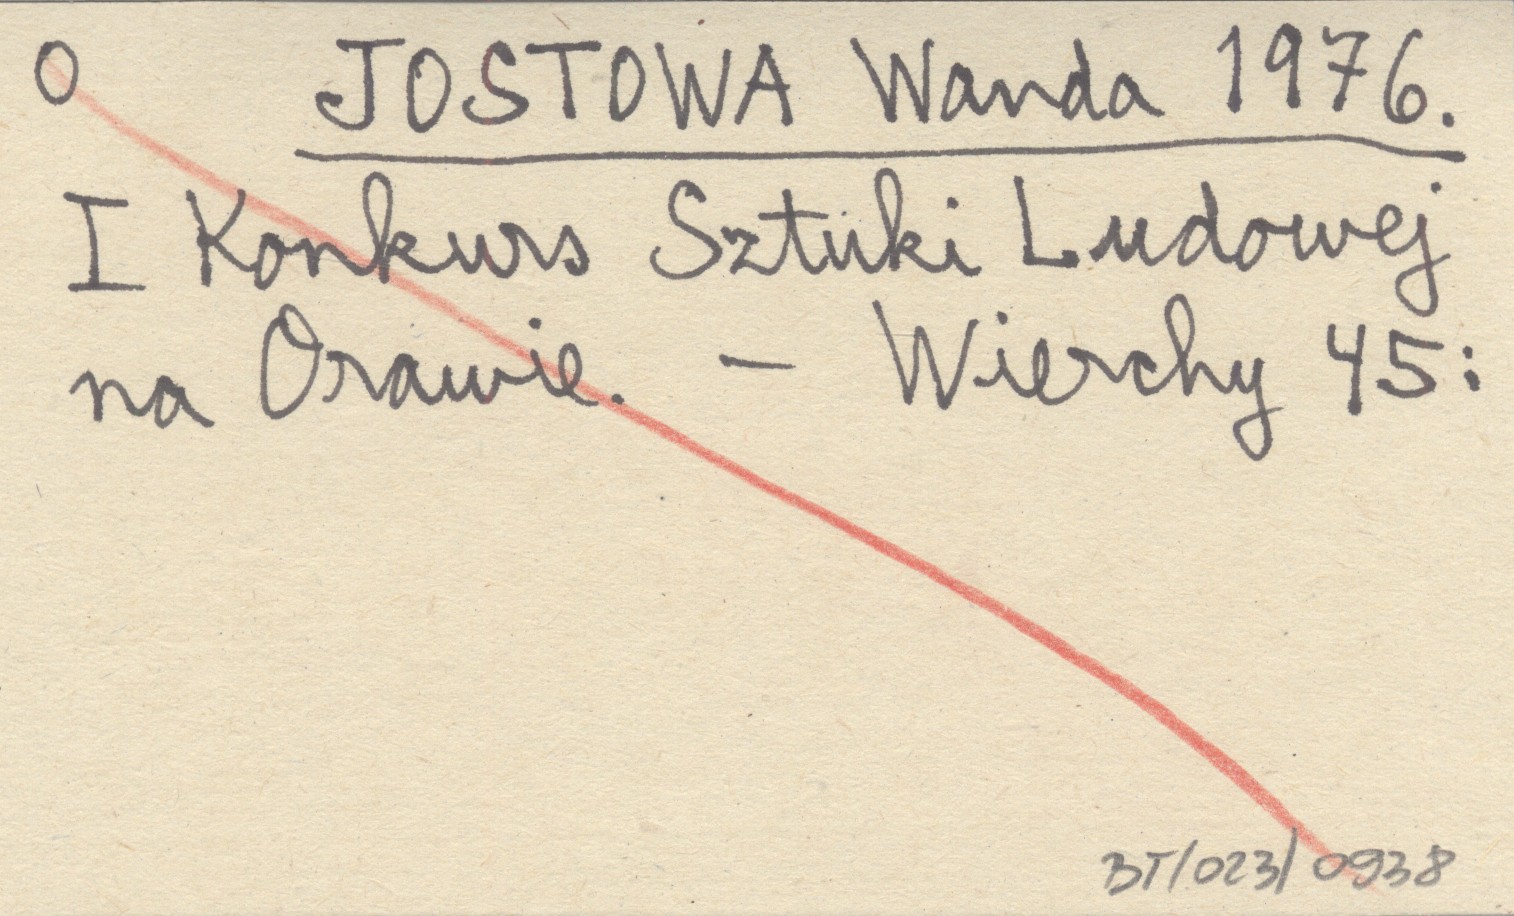 O JOSTOWA Wanda 1976.
I Konkurs Sztuki Ludowej
na Orawie. — Wierchy 45:
BT/023/0938